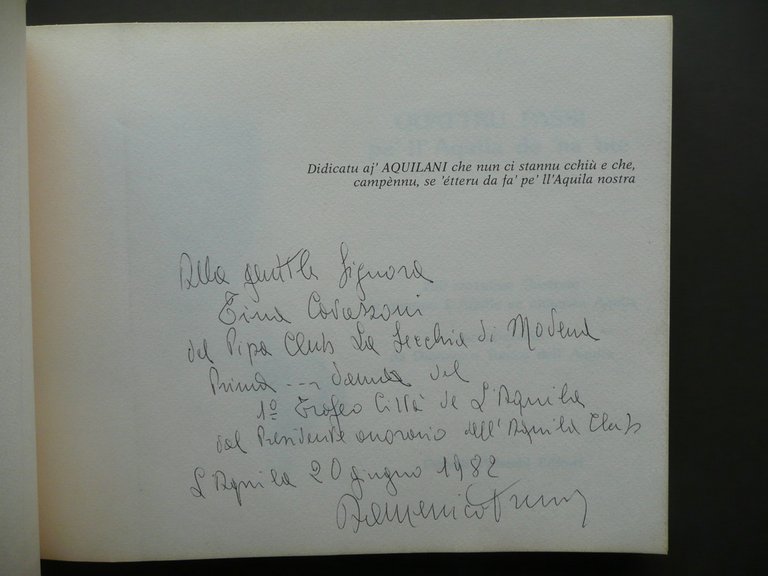 Didicatu aj' AQUILANI che nun ci stannu cchiù e che,
campènnu, se 'étteru da fa' pe' ll'Aquila nostra
Alla gentile Signora
Tina Cavazzoni
del Pipa Club La Secchia di Modena
Prima ... dama del
1º Trofeo Città de L'Aquila
dal Presidente onorario dell'Aquila Club
L'Aquila 20 giugno 1982
Domenico